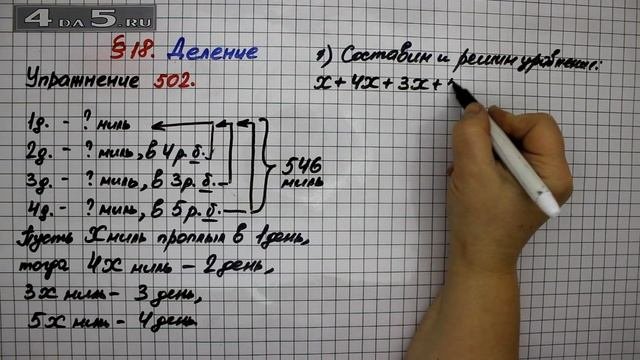 4 DA 5.RU
§ 18. Деление
Упражнение 502.
1д. - ? миль
2д. - ? миль, в 4 р. б.
3д. - ? миль, в 3 р. б.
4д. - ? миль, в 5 р. б.
546
миль
Пусть X миль проплыл в 1 день,
тогда 4X миль - 2 день,
3X миль - 3 день,
5X миль - 4 день.
1) Составим и решим уравнение:
X + 4X + 3X +